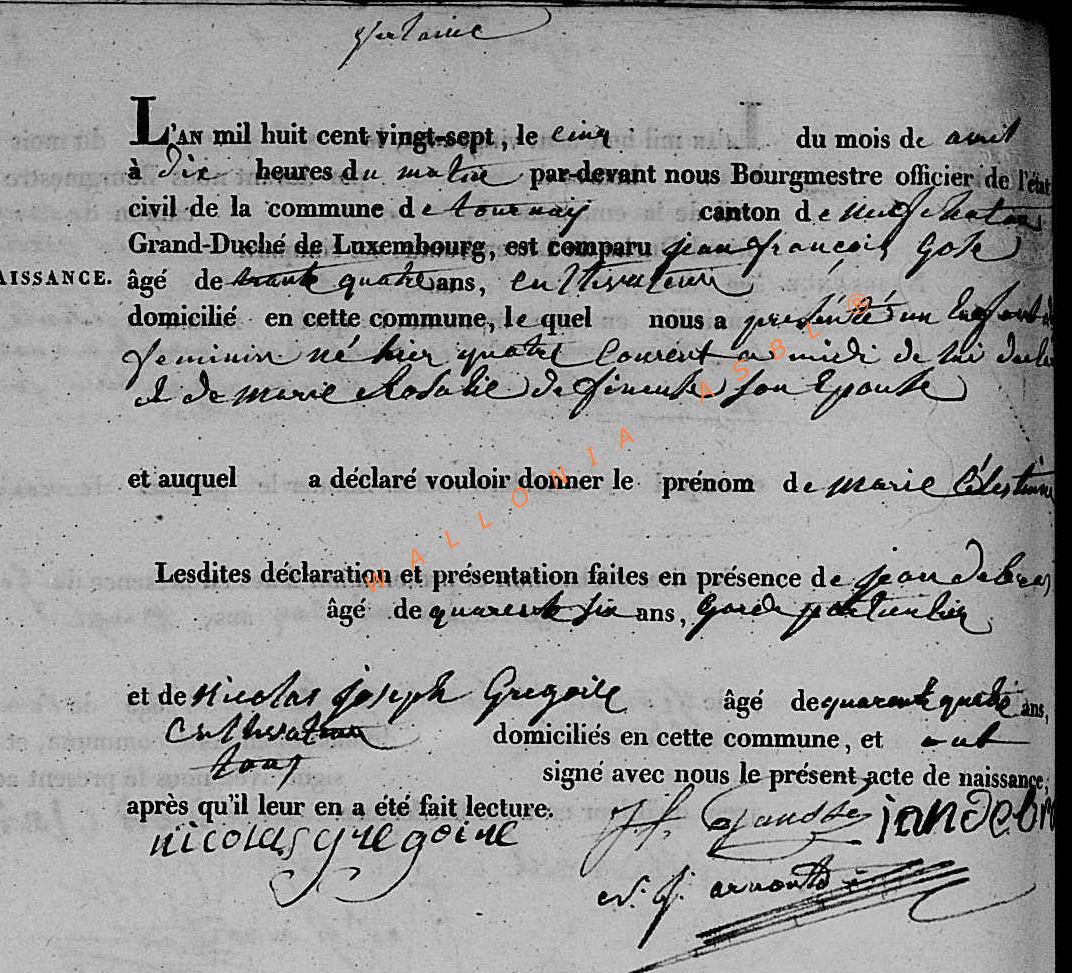 L'AN mil huit cent vingt-sept, le cinq du mois de avril
à dix heures du matin par-devant nous Bourgmestre officier de l'état
civil de la commune de tournay canton de neufchateau
Grand-Duché de Luxembourg, est comparu jean françois
AISSANCE. âgé de trente quatre ans, cultivateur
domicilié en cette commune, le quel nous a présenté un Enfant
feminin né hier quatre Courent a midi de lui
et de marie Rosalie son Epouse
et auquel a déclaré vouloir donner le prénom de marie Célestine
Lesdites déclaration et présentation faites en présence de jean
âgé de quarente six ans, Garde particulier
et de nicolas joseph Gregoire âgé de quarente quatre ans,
Cultivateur domiciliés en cette commune, et ont
tous signé avec nous le présent acte de naissance,
après qu'il leur en a été fait lecture.
nicolas gregoire jandebr
arnould
WALLONIA ASBL ®